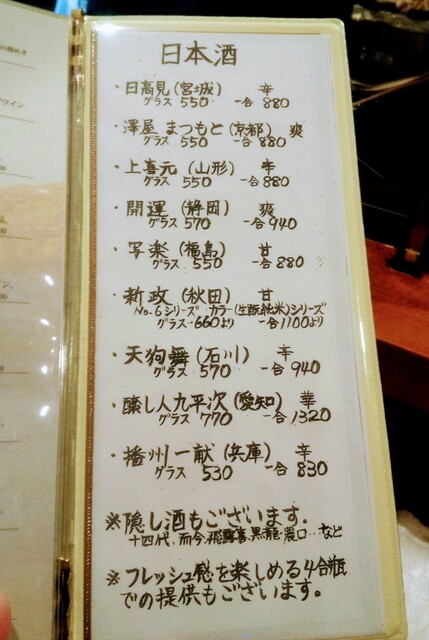 日本酒
・日高見(宮城) 辛
グラス 550 一合 880
・澤屋 まつもと(京都) 爽
グラス 550 一合 880
・上喜元(山形) 辛
グラス 550 一合 880
・開運(静岡) 爽
グラス 570 一合 940
・写楽(福島) 甘
グラス 550 一合 880
・新政(秋田) 甘
No.6シリーズ カラー(生酛純米)シリーズ
グラス 660より 一合 1100より
・天狗舞(石川) 辛
グラス 570 一合 940
・醸し人九平次(愛知) 華
グラス 770 一合 1320
・播州一献(兵庫) 辛
グラス 530 一合 830
※隠し酒もございます。
十四代、而今、飛露喜、黒龍、農口…など
※フレッシュ感を楽しめる4合瓶
での提供もございます。